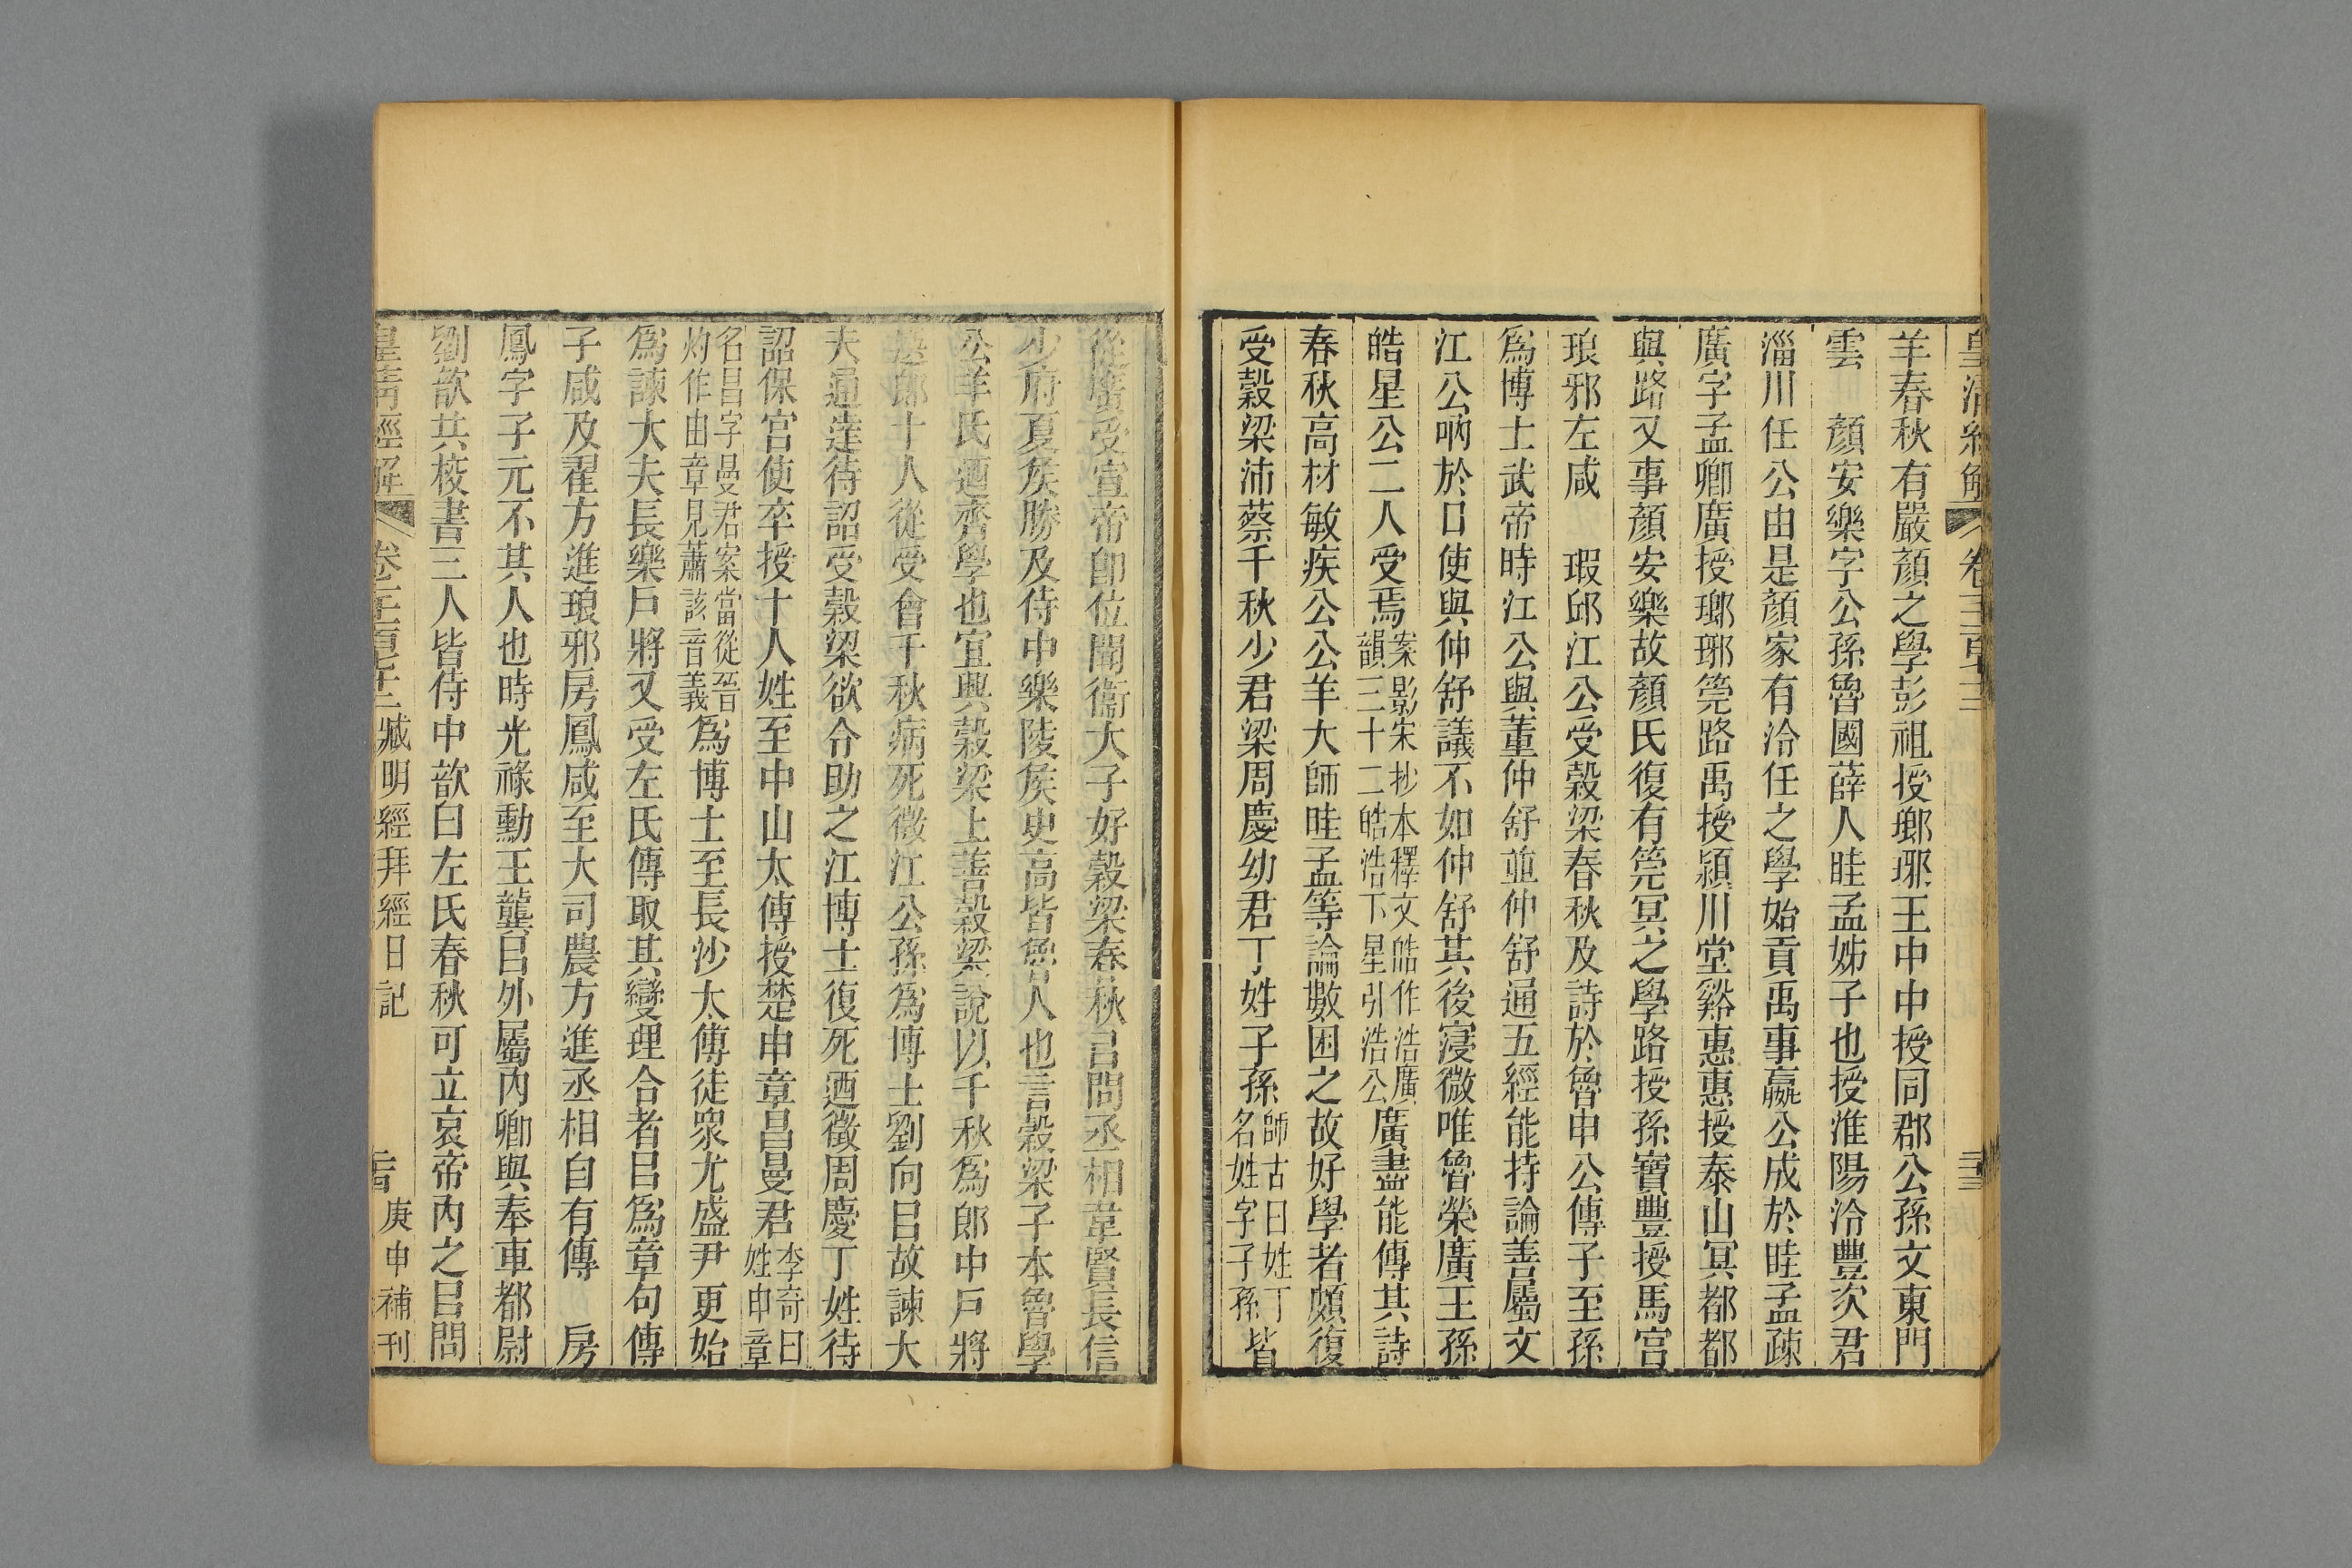 皇清經解 卷三百三十三
羊春秋有嚴顏之學彭祖授瑯琊王中中授同郡公孫文東門
雲　顏安樂字公孫魯國薛人眭孟姊子也授淮陽泠豐次君
淄川任公由是顏家有泠任之學始貢禹事嬴公成於眭孟疎
廣字孟卿廣授瑯琊筦路禹授潁川堂谿惠惠授泰山冥都都
與路又事顏安樂故顏氏復有筦冥之學路授孫寶豐授馬宮
琅邪左咸　瑕邱江公受穀梁春秋及詩於魯申公傳子至孫
爲博士武帝時江公與董仲舒並仲舒通五經能持論善屬文
江公吶於口使與仲舒議不如仲舒其後寖微唯魯榮廣王孫
皓星公二人受焉案影宋抄本釋文皓作浩廣韻三十二皓浩下星引浩公廣盡能傳其詩
春秋高材敏疾公公羊大師眭孟等論數困之故好學者頗復
受穀梁沛蔡千秋少君梁周慶幼君丁姓子孫師古曰姓丁名姓字子孫皆
從廣受宣帝卽位聞衞大子好穀梁春秋㠯問丞相韋賢長信
少府夏侯勝及侍中樂陵侯史高皆魯人也言穀梁子本魯學
公羊氏迺齊學也宜興穀梁上善穀梁說以千秋爲郎中戶將
選郎十人從受會千秋病死徵江公孫爲博士劉向㠯故諫大
夫通達待詔受穀梁欲令助之江博士復死迺徵周慶丁姓待
詔保宮使卒授十人姓至中山太傅授楚申章昌曼君李奇曰姓申章
名昌字曼君案當從晉灼作由章見蕭該音義爲博士至長沙太傅徒眾尤盛尹更始
爲諫大夫長樂戶將又受左氏傳取其變理合者㠯爲章句傳
子咸及翟方進琅邪房鳳咸至大司農方進丞相自有傳　房
鳳字子元不其人也時光祿勳王龔㠯外屬內卿與奉車都尉
劉歆共校書三人皆侍中歆白左氏春秋可立哀帝內之㠯問
皇清經解 臧明經拜經日記 庚申補刊